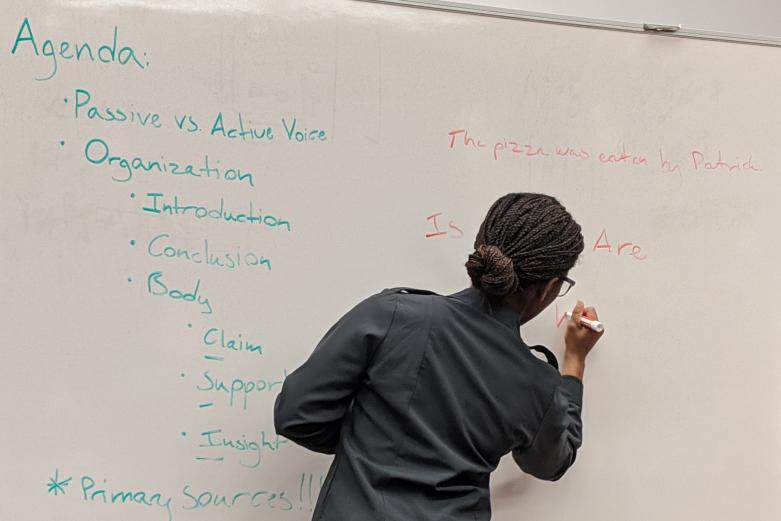 Agenda:
· Passive vs. Active Voice
· Organization
· Introduction
· Conclusion
· Body
· Claim
· Support
· Insight
* Primary Sources!!!
The pizza was eaten by Patrick.
Is Are